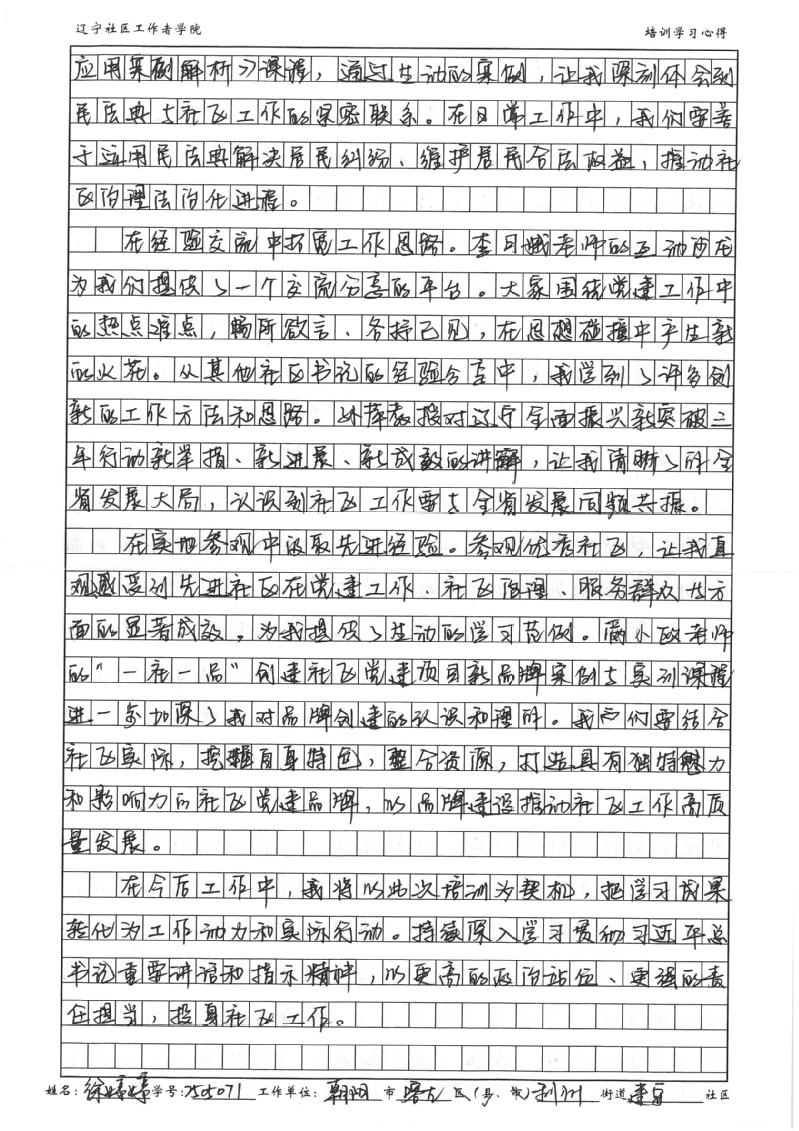 辽宁社区工作者学院 培训学习心得
应用案例解析》课程，通过生动的案例，让我深刻体会到
民法典与社区工作的紧密联系。在日常工作中，我们要善
于运用民法典解决居民纠纷、维护居民合法权益，推动社
区治理法治化进程。
在经验交流中拓宽工作思路。李月娥老师的互动沙龙
为我们提供了一个交流分享的平台。大家围绕党建工作中
的热点难点，畅所欲言、各抒己见，在思想碰撞中产生新
的火花。从其他社区书记的经验分享中，我学到了许多创
新的工作方法和思路。教授对辽宁全面振兴新突破三
年行动新举措、新进展、新成效的讲解，让我清晰了解全
省发展大局，认识到社区工作要与全省发展同频共振。
在实地参观中汲取先进经验。参观优秀社区，让我直
观感受到先进社区在党建工作、社区治理、服务群众等方
面的显著成效，为我提供了生动的学习范例。老师
的"一社一品"创建社区党建项目新品牌案例与实训课程
进一步加深了我对品牌创建的认识和理解。我们要结合
社区实际，挖掘自身特色，整合资源，打造具有独特魅力
和影响力的社区党建品牌，以品牌建设推动社区工作高质
量发展。
在今后工作中，我将以此次培训为契机，把学习成果
转化为工作动力和实际行动。持续深入学习贯彻习近平总
书记重要讲话和指示精神，以更高的政治站位、更强的责
任担当，投身社区工作。
姓名：徐婷婷 学号：255071 工作单位：朝阳 市 喀左 区（县、市）利州 街道 社区